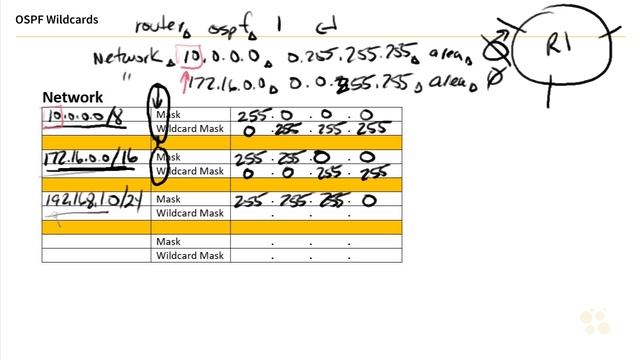 OSPF Wildcards
router ospf 1
Network 10.0.0.0 0.255.255.255 area 0
" 172.16.0.0 0.0.255.255 area 0
R1
Network
10.0.0.0/8 Mask 255.0.0.0
Wildcard Mask 0.255.255.255
172.16.0.0/16 Mask 255.255.0.0
Wildcard Mask 0.0.255.255
192.168.1.0/24 Mask 255.255.255.0
Wildcard Mask . . .
Mask . . .
Wildcard Mask . . .